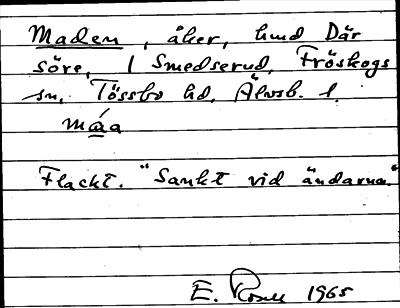 Maden, åker, hmd Där
söre, 1 Smedserud, Fröskogs
sn, Tössbo hd, Älvsb. l.
máa
Flackt. "Sankt vid ändarna."
E. Rosell 1965